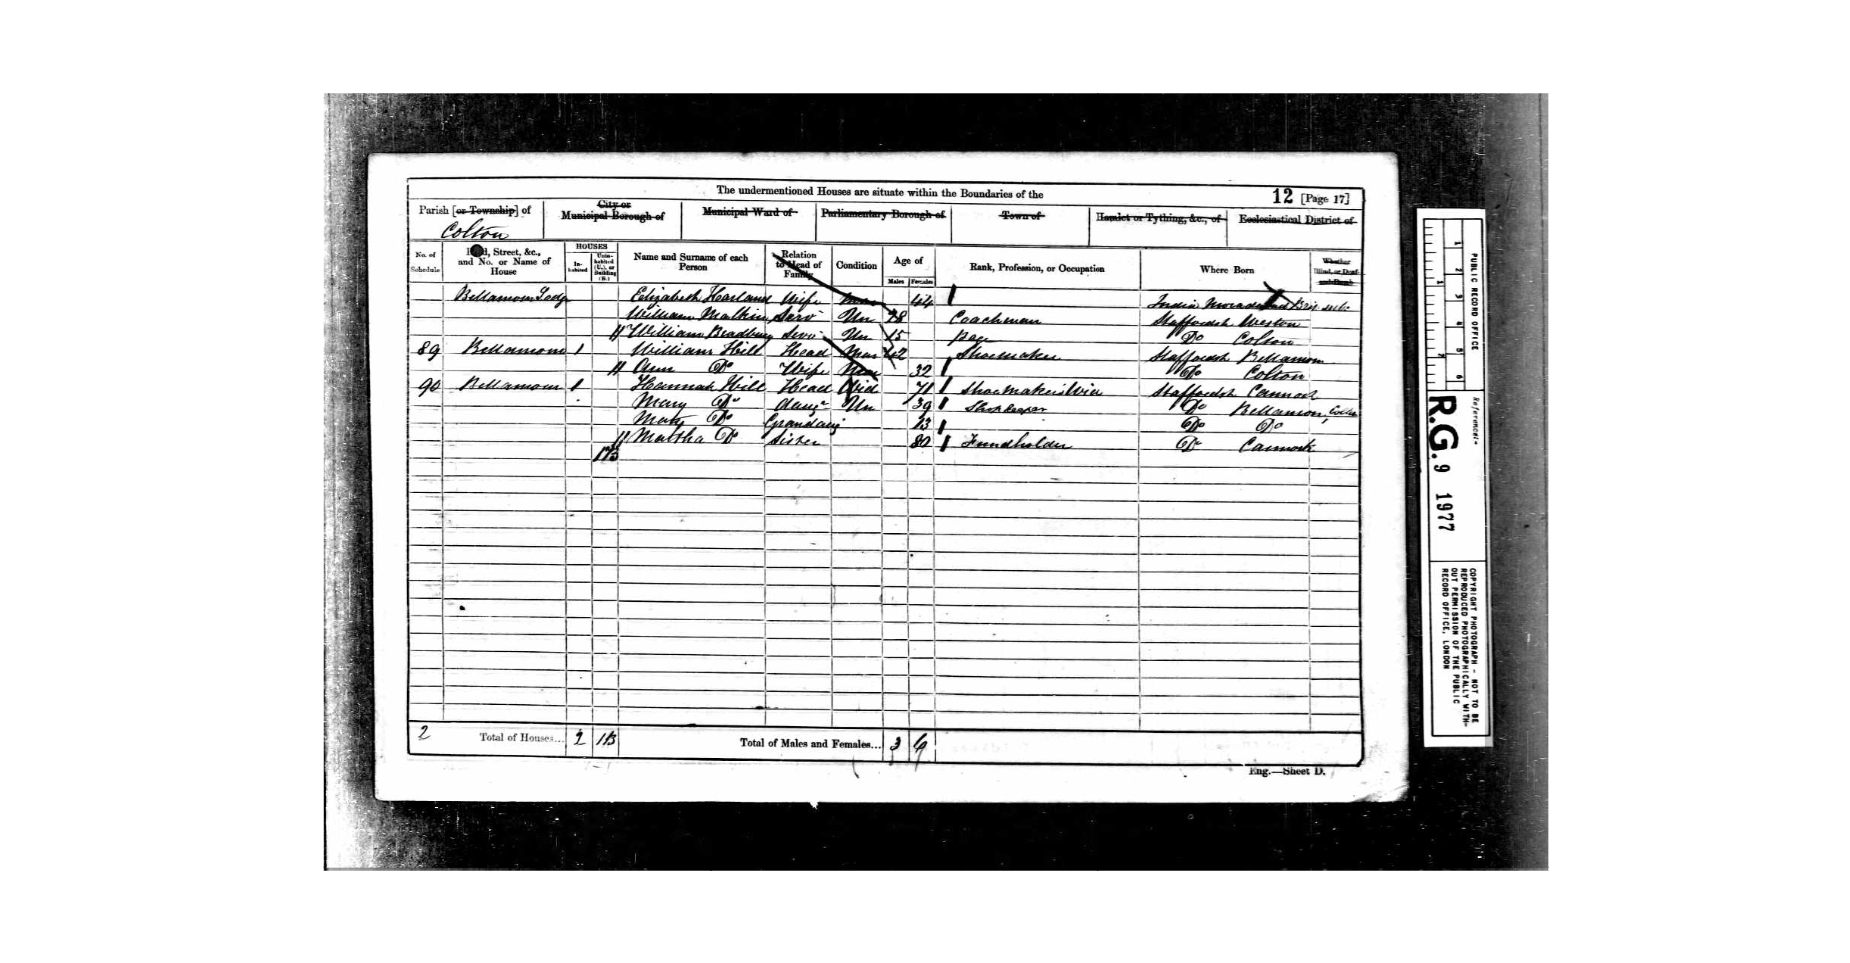 The undermentioned Houses are situate within the Boundaries of the
12 [Page 17]
Parish [or Township] of
Colton
City or
Municipal Borough of
Municipal Ward of
Parliamentary Borough of
Town of
Hamlet or Tything, &c., of
Ecclesiastical District of
No. of
Schedule
Street, &c.,
and No. or Name of
House
HOUSES
In-
habited
Unin-
habited
(U.), or
Building
(B.)
Name and Surname of each
Person
Relation
to Head of
Family
Condition
Age of
Males Females
Rank, Profession, or Occupation
Where Born
Whether
Blind, or Deaf-
and-Dumb
Bellamour Lodge Elizabeth Harland Wife Mar 44 India
William Malkin Serv Un 28 Coachman Staffordsh Weston
William Bradbury Serv Un 15 Page Do Colton
89 Bellamour 1 William Hill Head Mar 42 Shoemaker Staffordsh Bellamour
Ann Do Wife Mar 32 Do Colton
90 Bellamour 1 Hannah Hill Head Wid 71 Shoemakers Wid Staffordsh Cannock
Mary Do daugr Un 39 Shopkeeper Do Bellamour, Colton
Mary Do Grandaug 13 Do Do
Martha Do Sister 80 Fundholder Do Cannock
2 Total of Houses... 2 Total of Males and Females... 3 6
Eng.—Sheet D.
PUBLIC RECORD OFFICE
Reference:-
R.G. 9 1977
COPYRIGHT PHOTOGRAPH - NOT TO BE
REPRODUCED PHOTOGRAPHICALLY WITH-
OUT PERMISSION OF THE PUBLIC
RECORD OFFICE, LONDON